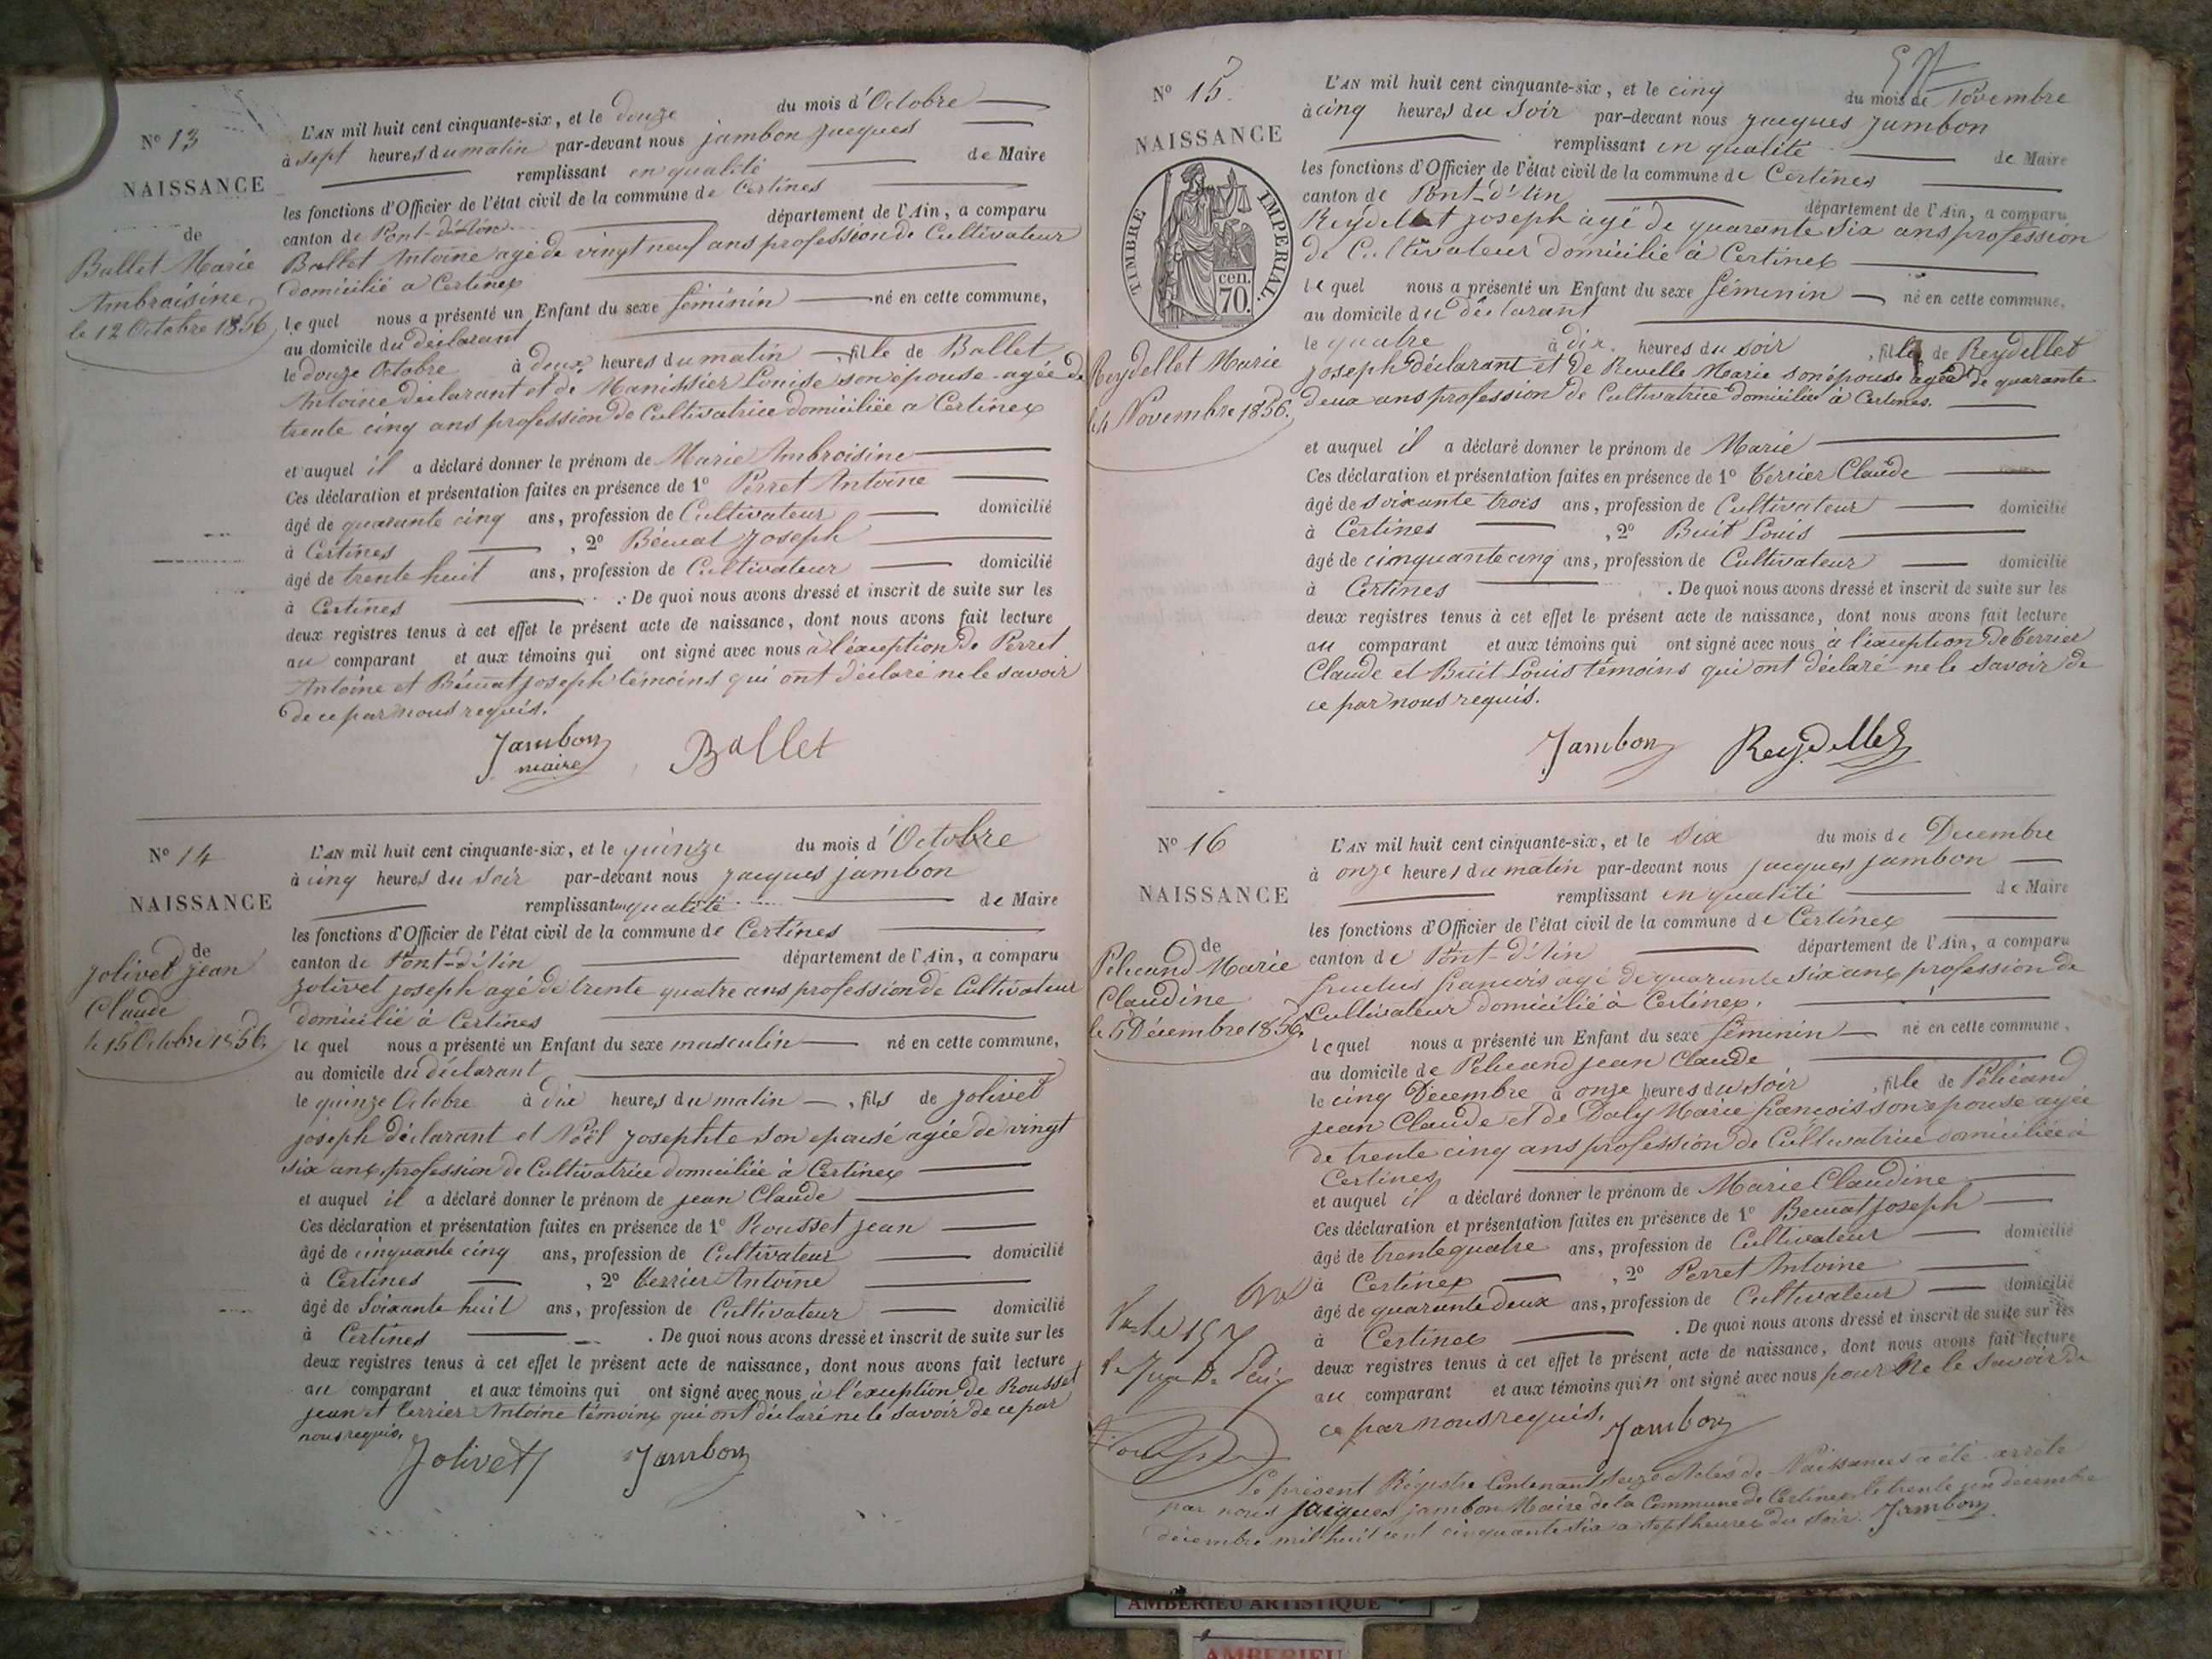 N° 13
NAISSANCE
de
Ballet Marie
Ambroisine
le 12 Octobre 1856
L'AN mil huit cent cinquante-six, et le douze du mois d'Octobre
à sept heures du matin par-devant nous jambon jacques
remplissant en qualité de Maire
les fonctions d'Officier de l'état civil de la commune de Certines
canton de Pont-d'Ain département de l'Ain, a comparu
Ballet Antoine agé de vingt neuf ans profession de Cultivateur
domicilié a Certines
lequel nous a présenté un Enfant du sexe féminin né en cette commune,
au domicile du déclarant
le douze Octobre à deux heures du matin, fille de Ballet
Antoine déclarant et de Manissier Louise son épouse agée de
trente cinq ans profession de Cultivatrice domiciliée a Certines
et auquel il a déclaré donner le prénom de Marie Ambroisine
Ces déclaration et présentation faites en présence de 1° Perret Antoine
âgé de quarante cinq ans, profession de Cultivateur domicilié
à Certines, 2° Béruat Joseph
âgé de trente huit ans, profession de Cultivateur domicilié
à Certines. De quoi nous avons dressé et inscrit de suite sur les
deux registres tenus à cet effet le présent acte de naissance, dont nous avons fait lecture
au comparant et aux témoins qui ont signé avec nous à l'éxception de Perret
Antoine et Béruat joseph témoins qui ont déclaré ne le savoir
de ce par nous requis.
Jambon Ballet
maire
N° 14
NAISSANCE
de
Jolivet jean
Claude
le 15 Octobre 1856
L'AN mil huit cent cinquante-six, et le quinze du mois d'Octobre
à cinq heures du soir par-devant nous jacques jambon
remplissant en qualité de Maire
les fonctions d'Officier de l'état civil de la commune de Certines
canton de Pont-d'Ain département de l'Ain, a comparu
Jolivet joseph agé de trente quatre ans profession de Cultivateur
domicilié à Certines
lequel nous a présenté un Enfant du sexe masculin né en cette commune,
au domicile du déclarant
le quinze Octobre à dix heures du matin, fils de jolivet
joseph déclarant et Noël Josephte son epouse agée de vingt
six ans profession de Cultivatrice domiciliée à Certines
et auquel il a déclaré donner le prénom de jean Claude
Ces déclaration et présentation faites en présence de 1° Rousset jean
âgé de cinquante cinq ans, profession de Cultivateur domicilié
à Certines, 2° Verrier Antoine
âgé de Soixante huit ans, profession de Cultivateur domicilié
à Certines. De quoi nous avons dressé et inscrit de suite sur les
deux registres tenus à cet effet le présent acte de naissance, dont nous avons fait lecture
au comparant et aux témoins qui ont signé avec nous à l'éxception de Rousset
jean et Verrier Antoine témoins qui ont déclaré ne le savoir de ce par
nous requis.
Jolivet Jambon
N° 15
NAISSANCE
TIMBRE IMPÉRIAL
cen.
70.
Reydellet Marie
le 4 Novembre 1856.
L'AN mil huit cent cinquante-six, et le cinq du mois de Novembre
à cinq heures du soir par-devant nous jacques jambon
remplissant en qualité de Maire
les fonctions d'Officier de l'état civil de la commune de Certines
canton de Pont-d'Ain département de l'Ain, a comparu
Reydellet joseph âgé de quarante six ans profession
de Cultivateur domicilié à Certines
lequel nous a présenté un Enfant du sexe féminin né en cette commune,
au domicile du déclarant
le quatre à dix heures du soir, fille de Reydellet
joseph déclarant et de Revelle Marie son épouse agée de quarante
deux ans profession de Cultivatrice domiciliée à Certines.
et auquel il a déclaré donner le prénom de Marie
Ces déclaration et présentation faites en présence de 1° Verrier Claude
âgé de soixante trois ans, profession de Cultivateur domicilié
à Certines, 2° Buit Louis
âgé de cinquante cinq ans, profession de Cultivateur domicilié
à Certines. De quoi nous avons dressé et inscrit de suite sur les
deux registres tenus à cet effet le présent acte de naissance, dont nous avons fait lecture
au comparant et aux témoins qui ont signé avec nous à l'éxception de Verrier
Claude et Buit Louis témoins qui ont déclaré ne le savoir de
ce par nous requis.
Jambon Reydellet
N° 16
NAISSANCE
de
Pelicand Marie
Claudine
le 5 Décembre 1856.
L'AN mil huit cent cinquante-six, et le Six du mois de Decembre
à onze heures du matin par-devant nous jacques jambon
remplissant en qualité de Maire
les fonctions d'Officier de l'état civil de la commune de Certines
canton de Pont-d'Ain département de l'Ain, a comparu
francois agé de quarante six ans profession de
Cultivateur domicilié à Certines.
lequel nous a présenté un Enfant du sexe féminin né en cette commune,
au domicile de Pélicand jean Claude
le cinq Décembre à onze heures du soir, fille de Pélicand
jean Claude et de Daly Marie francois son epouse agée
de trente cinq ans profession de Cultivatrice domiciliée à
Certines
et auquel il a déclaré donner le prénom de Marie Claudine
Ces déclaration et présentation faites en présence de 1° Beruat Joseph
âgé de trente quatre ans, profession de Cultivateur domicilié
à Certines, 2° Perret Antoine
âgé de quarante deux ans, profession de Cultivateur domicilié
à Certines. De quoi nous avons dressé et inscrit de suite sur les
deux registres tenus à cet effet le présent acte de naissance, dont nous avons fait lecture
au comparant et aux témoins qui n'ont signé avec nous pour ne le savoir de
ce par nous requis. Jambon
Le présent Régistre Contenant seize Actes de Naissances a été arrêté
par nous jacques jambon Maire de la Commune de Certines le trente un decembre
décembre mil huit cent cinquante six a sept heures du soir. Jambon
le Juge de Paix
AMBERIEU ARTISTIQUE
AMBERIEU